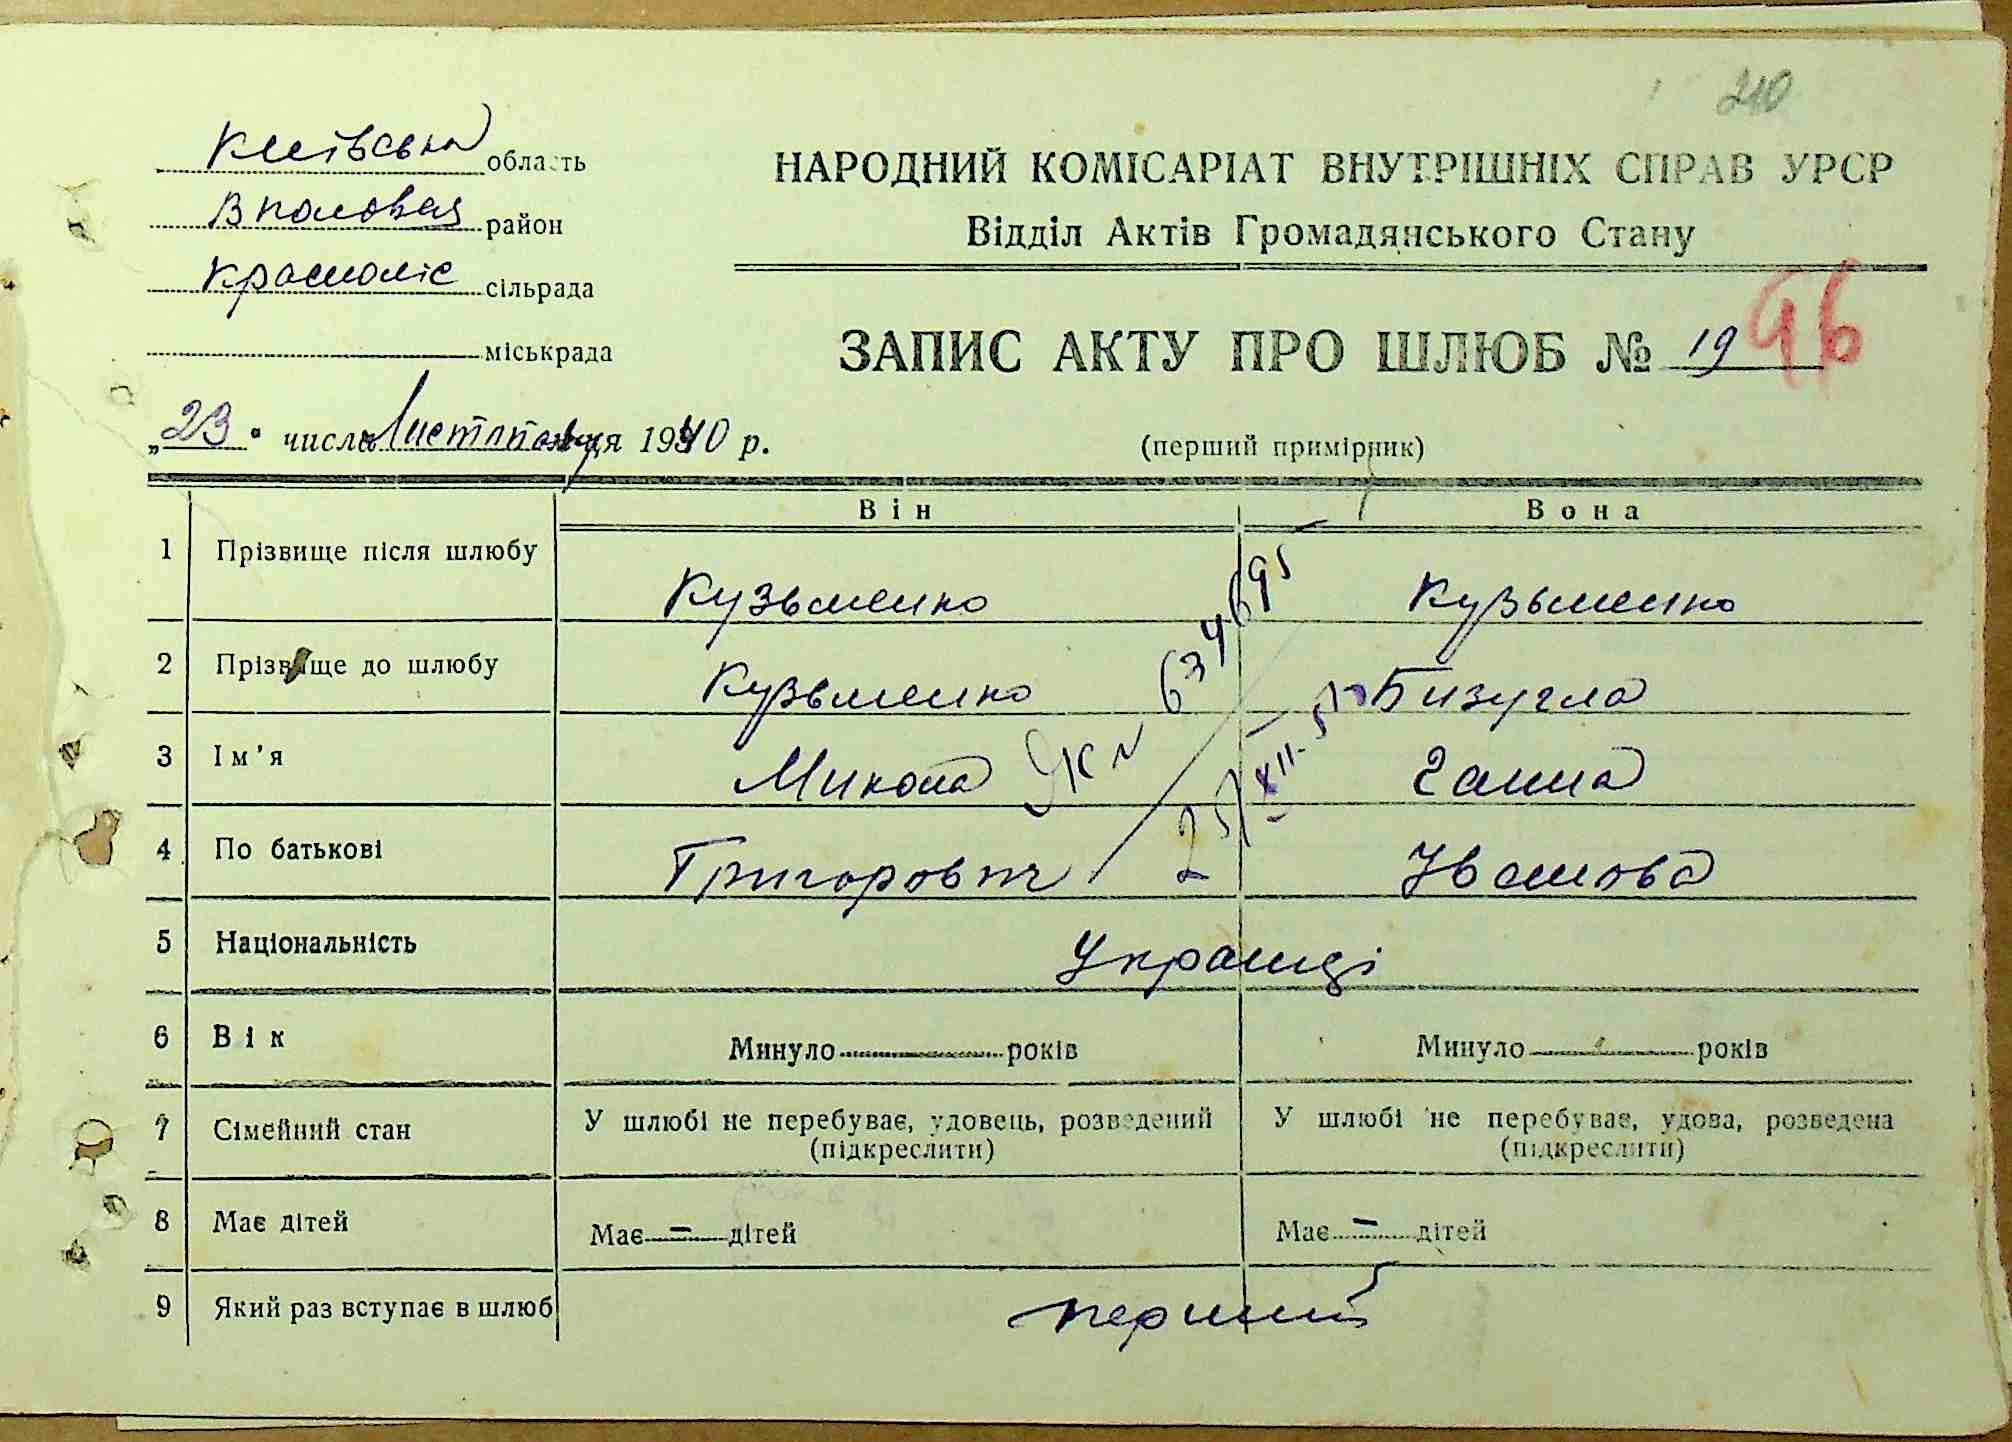 210
Київська область
район
Красноліс сільрада
міськрада
НАРОДНИЙ КОМІСАРІАТ ВНУТРІШНІХ СПРАВ УРСР
Відділ Актів Громадянського Стану
ЗАПИС АКТУ ПРО ШЛЮБ № 19
96
„23" числа Листопада 1940 р.
(перший примірник)
Він Вона
1 Прізвище після шлюбу Кузьменко Кузьменко
2 Прізвище до шлюбу Кузьменко Бизугла
3 Ім'я Микола Ганна
4 По батькові Григорович Іванова
5 Національність Українці
6 Вік Минуло років Минуло років
7 Сімейний стан У шлюбі не перебуває, удовець, розведений У шлюбі не перебуває, удова, розведена
(підкреслити) (підкреслити)
8 Має дітей Має – дітей Має – дітей
9 Який раз вступає в шлюб перший